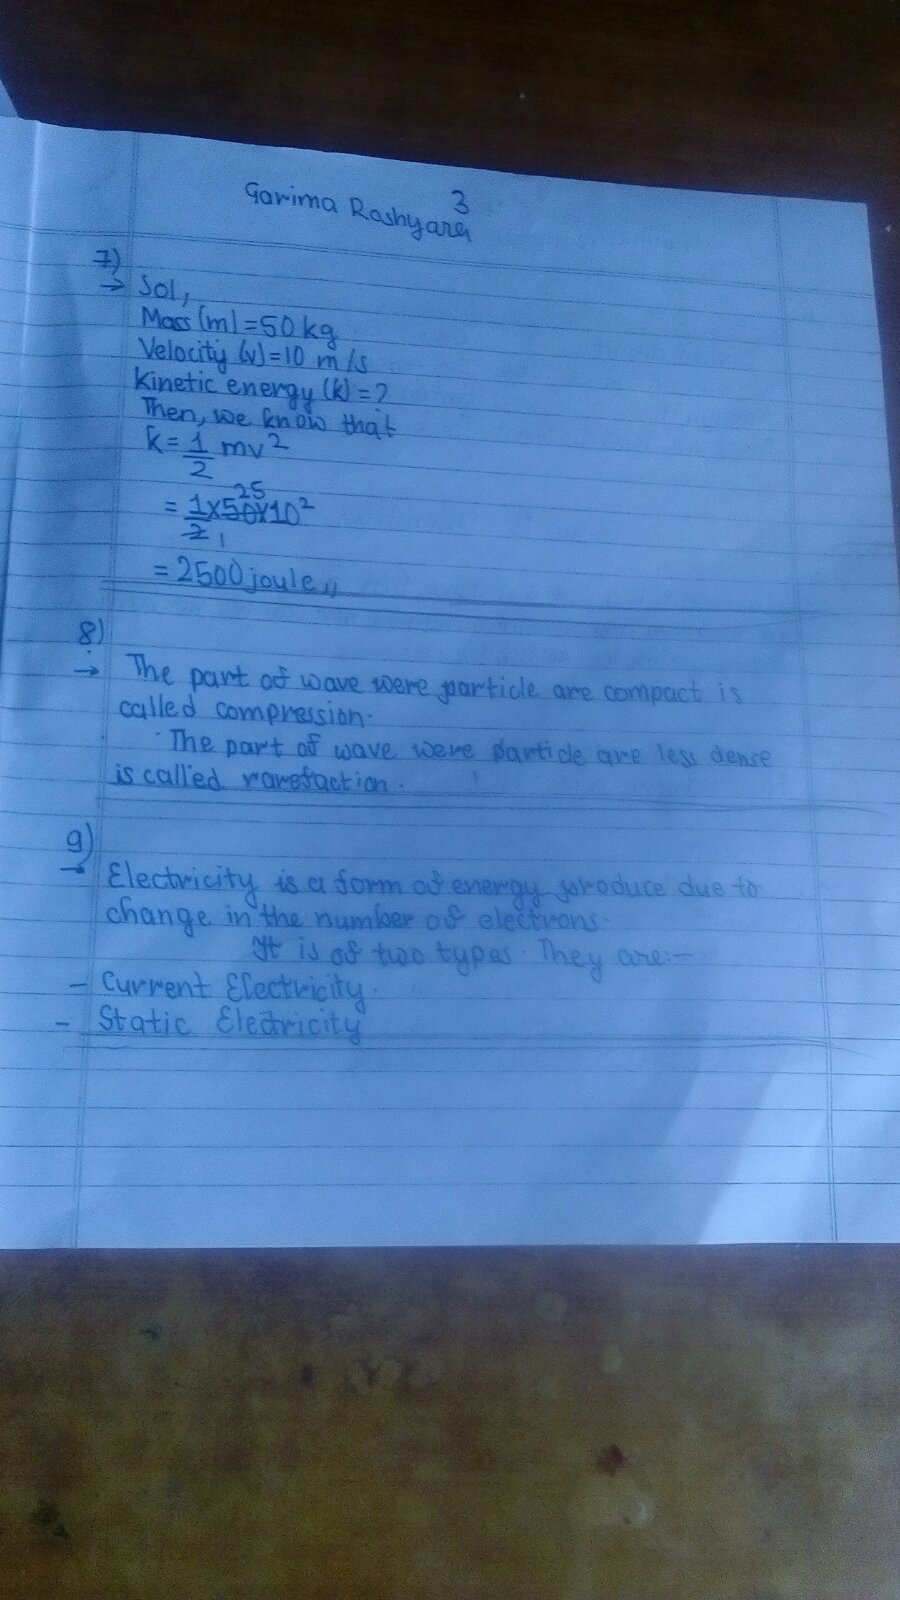 3
Garima Rashyara
7)
→ Sol,
Mass (m) = 50 kg
Velocity (v) = 10 m/s
Kinetic energy (k) = ?
Then, we know that
k = 1/2 mv²
25
= 1/2 x 50 x 10²
1
= 2500 joule,,
8)
→ The part of wave were particle are compact is
called compression.
The part of wave were particle are less dence
is called rarefaction.
9)
→ Electricity is a form of energy produce due to
change in the number of electrons.
It is of two types. They are:-
- Current Electricity.
- Static Electricity